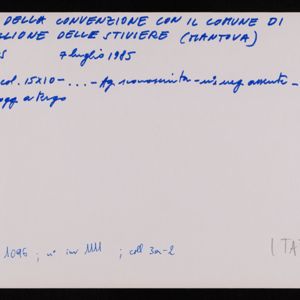 DELLA CONVENZIONE CON IL COMUNE DI
GLIONE DELLE STIVIERE (MANTOVA)
S 7 luglio 1985
col. 15x10 - ... - Ag. sconosciuta - n° neg. assente -
a tergo
1095 ; n° inv 1111 ; coll 3a-2
(TAT